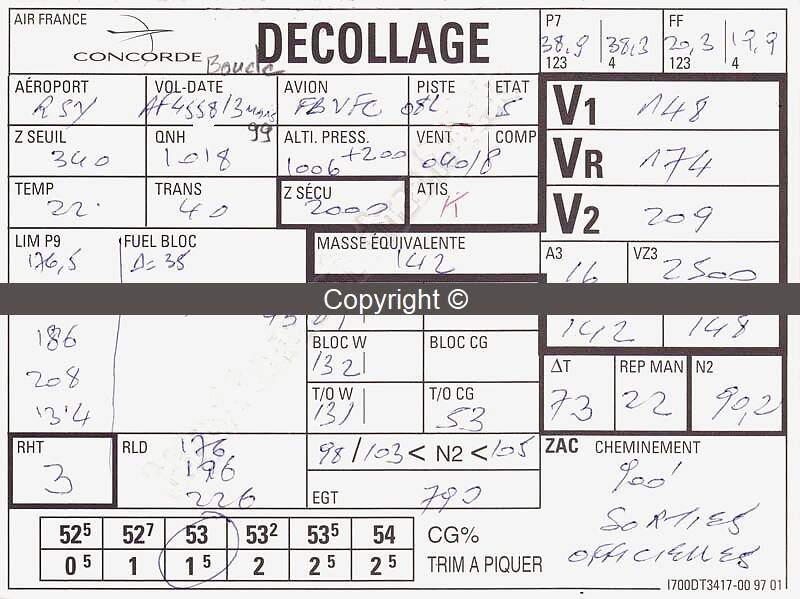 AIR FRANCE
CONCORDE
Boucle
DECOLLAGE
P7 38,9 38,3
123 4
FF 20,3 19,9
123 4
AÉROPORT VOL-DATE AVION PISTE ETAT
RSY AF4558/3 mars 99 FBVFC 08L 5
V1 148
Z SEUIL QNH ALTI. PRESS. VENT COMP
340 1018 1006 +200 090/8
VR 174
TEMP TRANS Z SÉCU ATIS
22 40 2000 K
V2 209
LIM P9 FUEL BLOC MASSE ÉQUIVALENTE
176,5 Δ= 35 142
A3 VZ3
16 2500
Copyright ©
142 148
186
BLOC W BLOC CG
132
208
ΔT REP MAN N2
73 22 90,2
T/O W T/O CG
131 53
13'4
RHT RLD
3 176
196
226
98 / 103 < N2 < 105
EGT 790
ZAC CHEMINEMENT
900'
SORTIES
OFFICIELLES
52⁵ 52⁷ 53 53² 53⁵ 54 CG%
0⁵ 1 1⁵ 2 2⁵ 2⁵ TRIM A PIQUER
I700DT3417-00 97 01